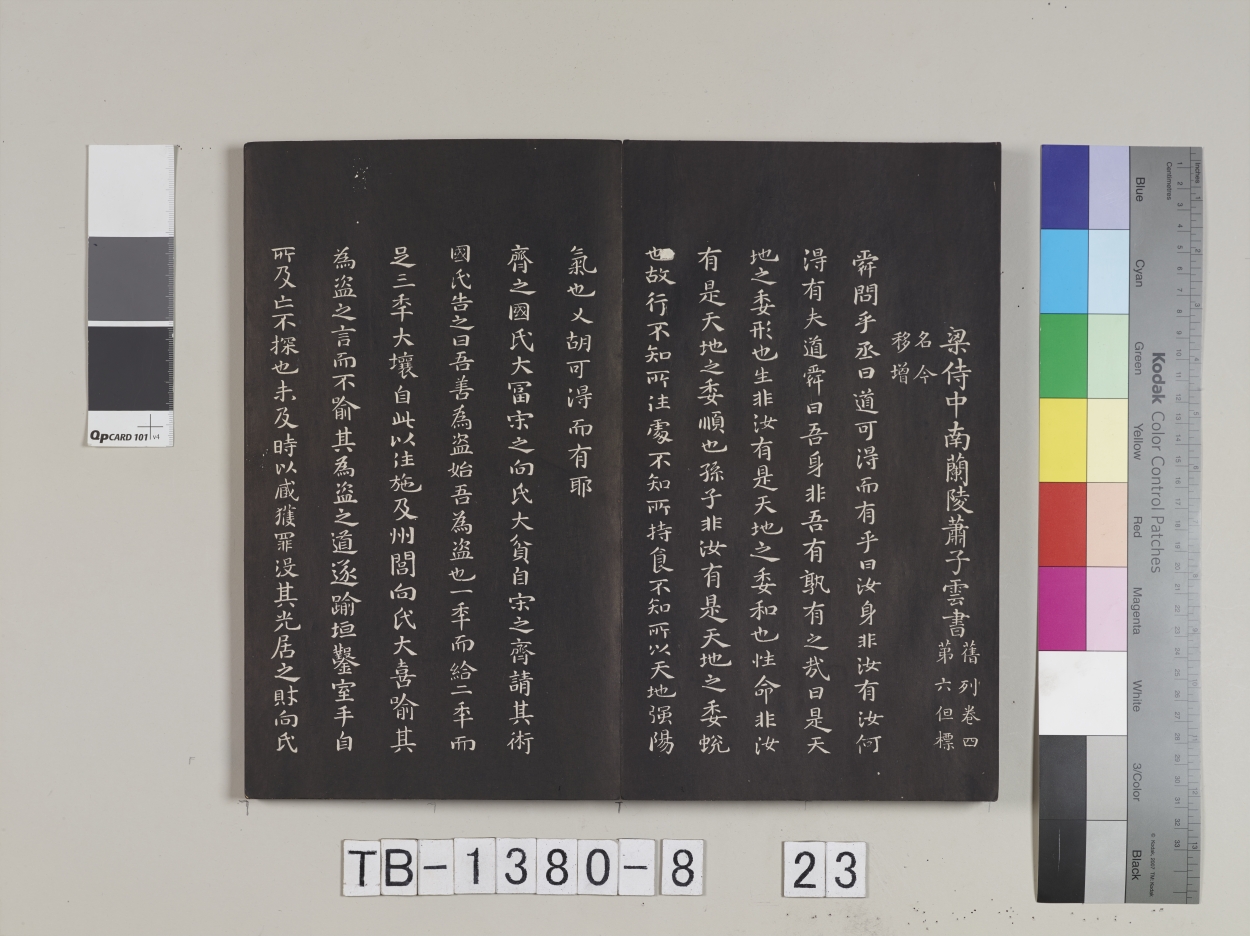 梁侍中南蘭陵蕭子雲書
舊列卷四
第六但標
名今
移增
舜問乎丞曰道可得而有乎曰汝身非汝有汝何
得有夫道舜曰吾身非吾有孰有之哉曰是天
地之委形也生非汝有是天地之委和也性命非汝
有是天地之委順也孫子非汝有是天地之委蛻
也故行不知所往處不知所持食不知所以天地强陽
氣也乂胡可得而有耶
齊之國氏大冨宋之向氏大貧自宋之齊請其術
國氏告之曰吾善為盗始吾為盗也一秊而給二秊而
足三秊大壤自此以往施及州閭向氏大喜喻其
為盗之言而不喻其為盗之道遂踰垣鑿室手自
所及亡不探也未及時以臧獲罪没其先居之財向氏
QPCARD 101 v4
Kodak Color Control Patches
Blue
Cyan
Green
Yellow
Red
Magenta
White
3/Color
Black
Inches
Centimetres
TB-1380-8 23